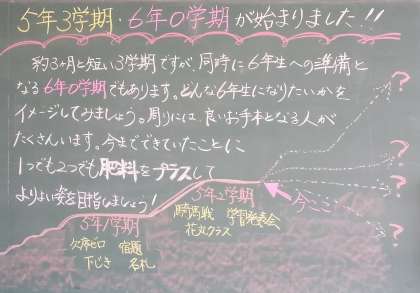 5年3学期・6年0学期が始まりました!!
約3ヶ月と短い3学期ですが、同時に6年生への準備と
なる6年0学期でもあります。どんな6年生になりたいかを
イメージしてみましょう。周りには、良いお手本となる人が
たくさんいます。今までできていたことに
1つでも2つでも肥料をプラスして
よりよい姿を目指しましょう!
?
?
?
?
今ここ
5年2学期
騎馬戦 学習発表会
花丸クラス
5年1学期
欠席ゼロ 宿題
下じき 名札